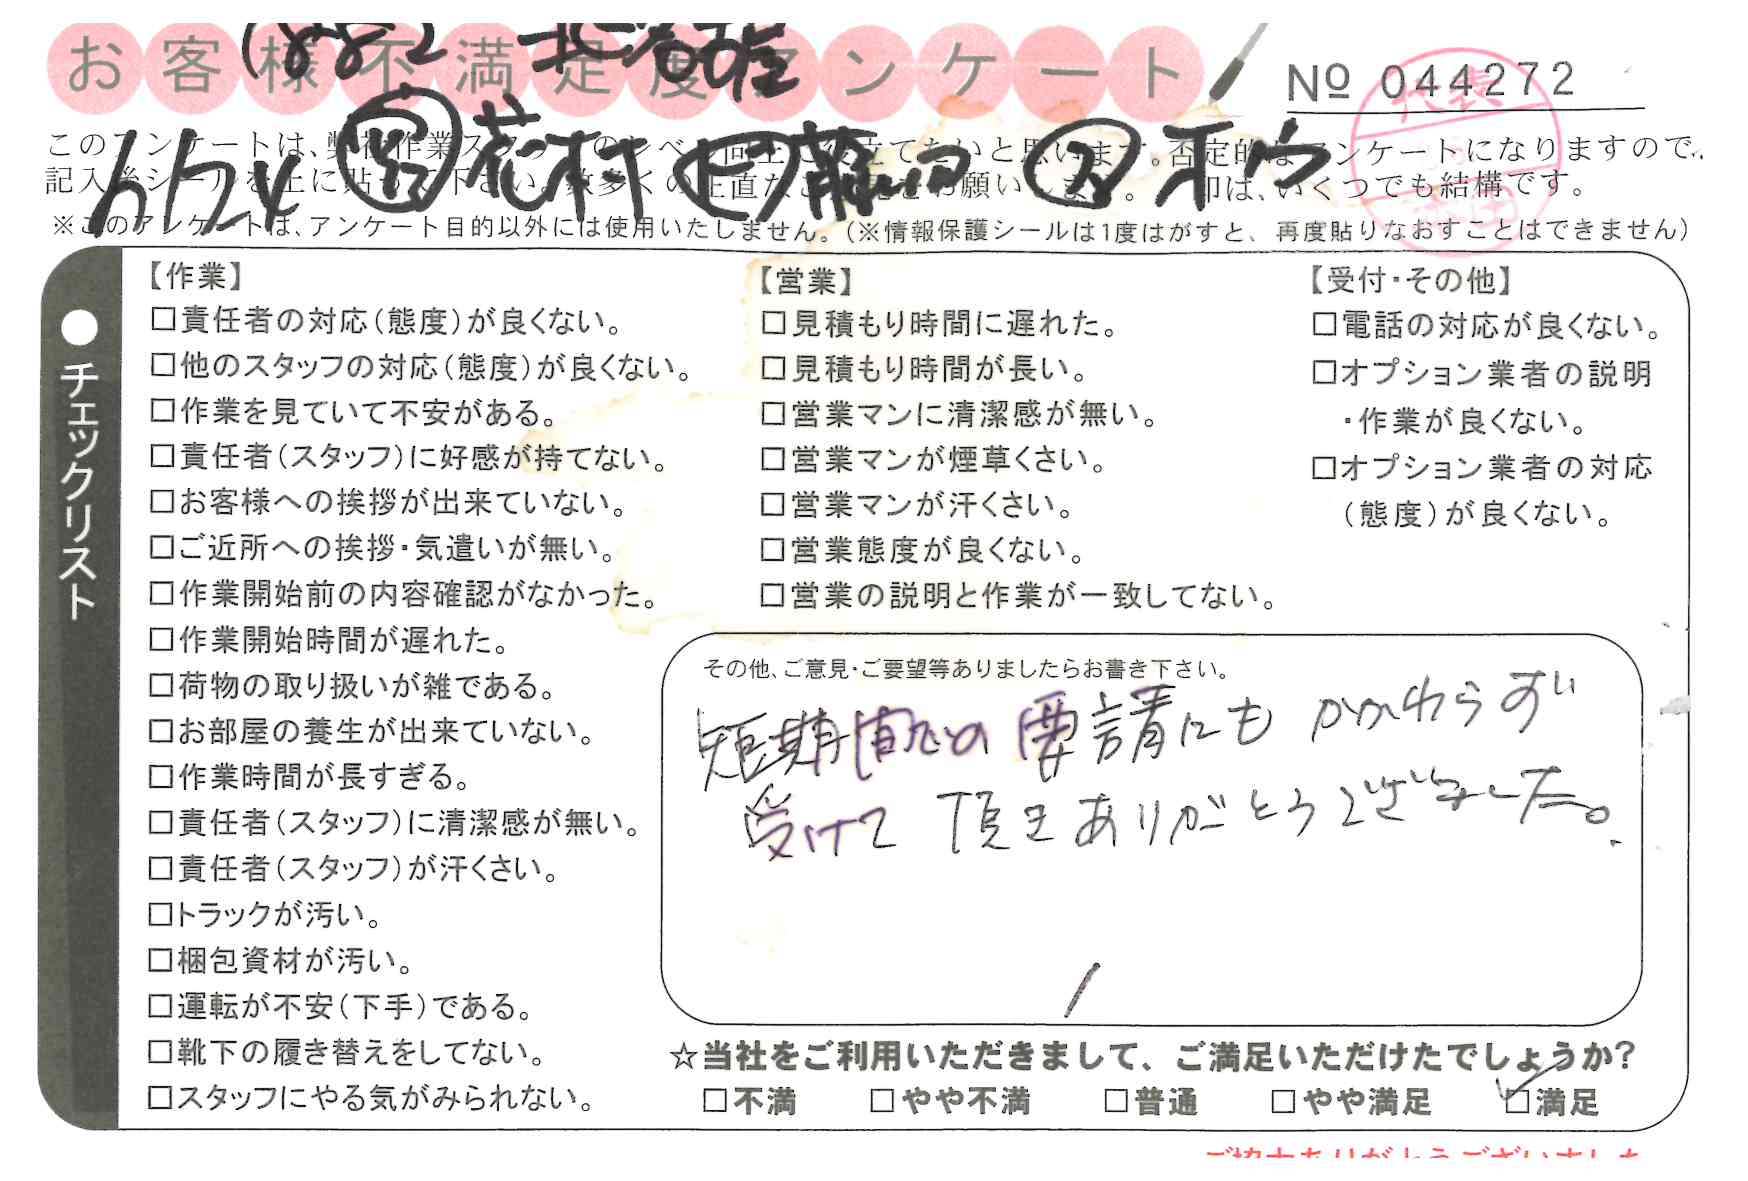 お客様不満足度アンケート
№ 044272
このアンケートは、弊社作業スタッフのレベル向上に役立てたいと思います。否定的なアンケートになりますので、
記入後シールを上に貼って下さい。数多くの正直なご意見をお願いします。 印は、いくつでも結構です。
6/24 花村
※このアンケートは、アンケート目的以外には使用いたしません。(※情報保護シールは1度はがすと、再度貼りなおすことはできません)
●チェックリスト
【作業】
□責任者の対応(態度)が良くない。
□他のスタッフの対応(態度)が良くない。
□作業を見ていて不安がある。
□責任者(スタッフ)に好感が持てない。
□お客様への挨拶が出来ていない。
□ご近所への挨拶・気遣いが無い。
□作業開始前の内容確認がなかった。
□作業開始時間が遅れた。
□荷物の取り扱いが雑である。
□お部屋の養生が出来ていない。
□作業時間が長すぎる。
□責任者(スタッフ)に清潔感が無い。
□責任者(スタッフ)が汗くさい。
□トラックが汚い。
□梱包資材が汚い。
□運転が不安(下手)である。
□靴下の履き替えをしてない。
□スタッフにやる気がみられない。
【営業】
□見積もり時間に遅れた。
□見積もり時間が長い。
□営業マンに清潔感が無い。
□営業マンが煙草くさい。
□営業マンが汗くさい。
□営業態度が良くない。
□営業の説明と作業が一致してない。
【受付・その他】
□電話の対応が良くない。
□オプション業者の説明
・作業が良くない。
□オプション業者の対応
(態度)が良くない。
その他、ご意見・ご要望等ありましたらお書き下さい。
短期間での要請にもかかわらず
受けて頂きありがとうございました。
☆当社をご利用いただきまして、ご満足いただけたでしょうか?
□不満 □やや不満 □普通 □やや満足 □満足
ご協力ありがとうございました